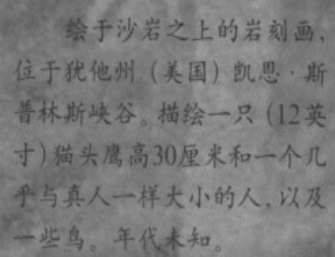 绘于沙岩之上的岩刻画，
位于犹他州（美国）凯恩·斯
普林斯峡谷。描绘一只（12英
寸）猫头鹰高30厘米和一个几
乎与真人一样大小的人，以及
一些鸟。年代未知。